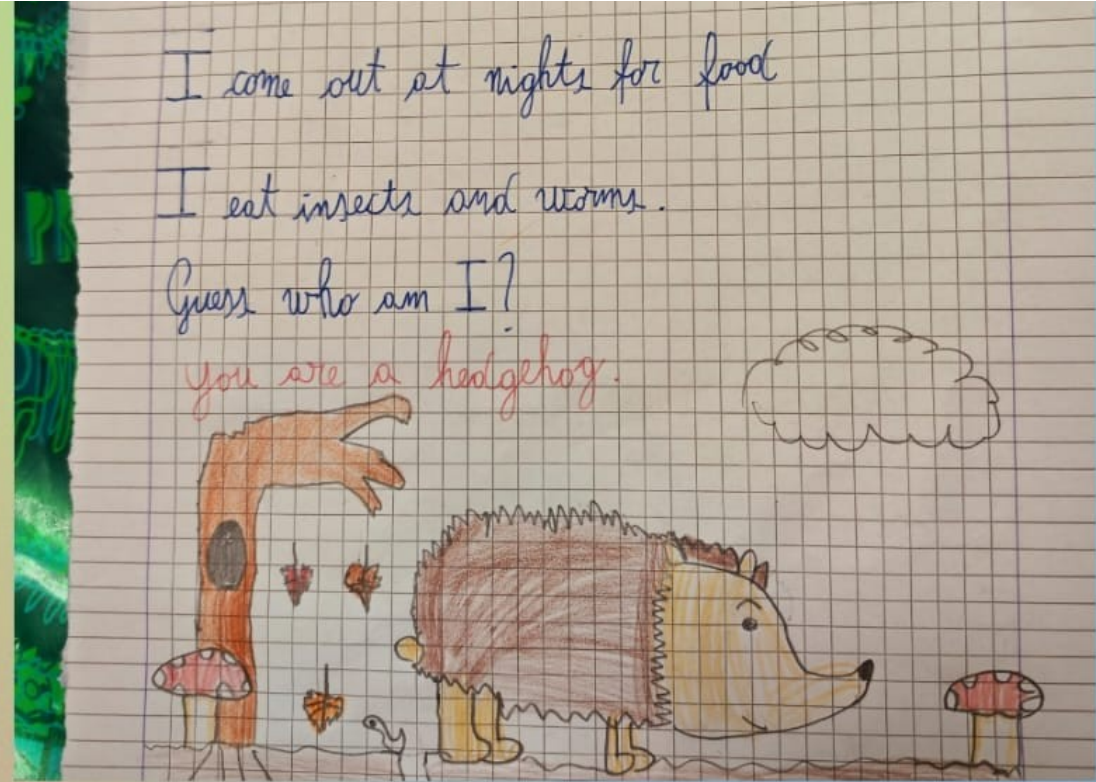 I come out at nights for food
I eat insects and worms.
Guess who am I?
you are a hedgehog.